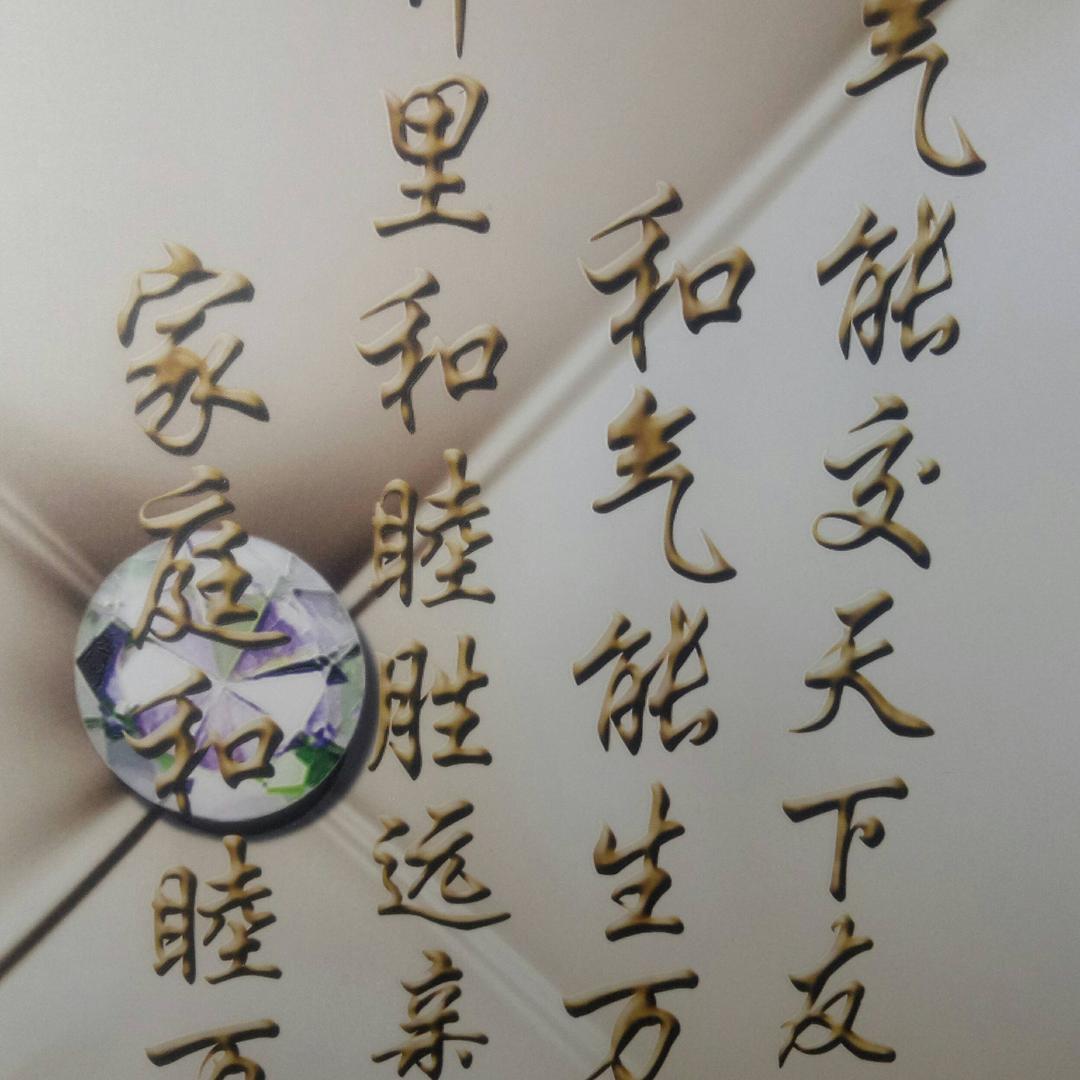 气能交天下友
和气能生万
里和睦胜远亲
家庭和睦百